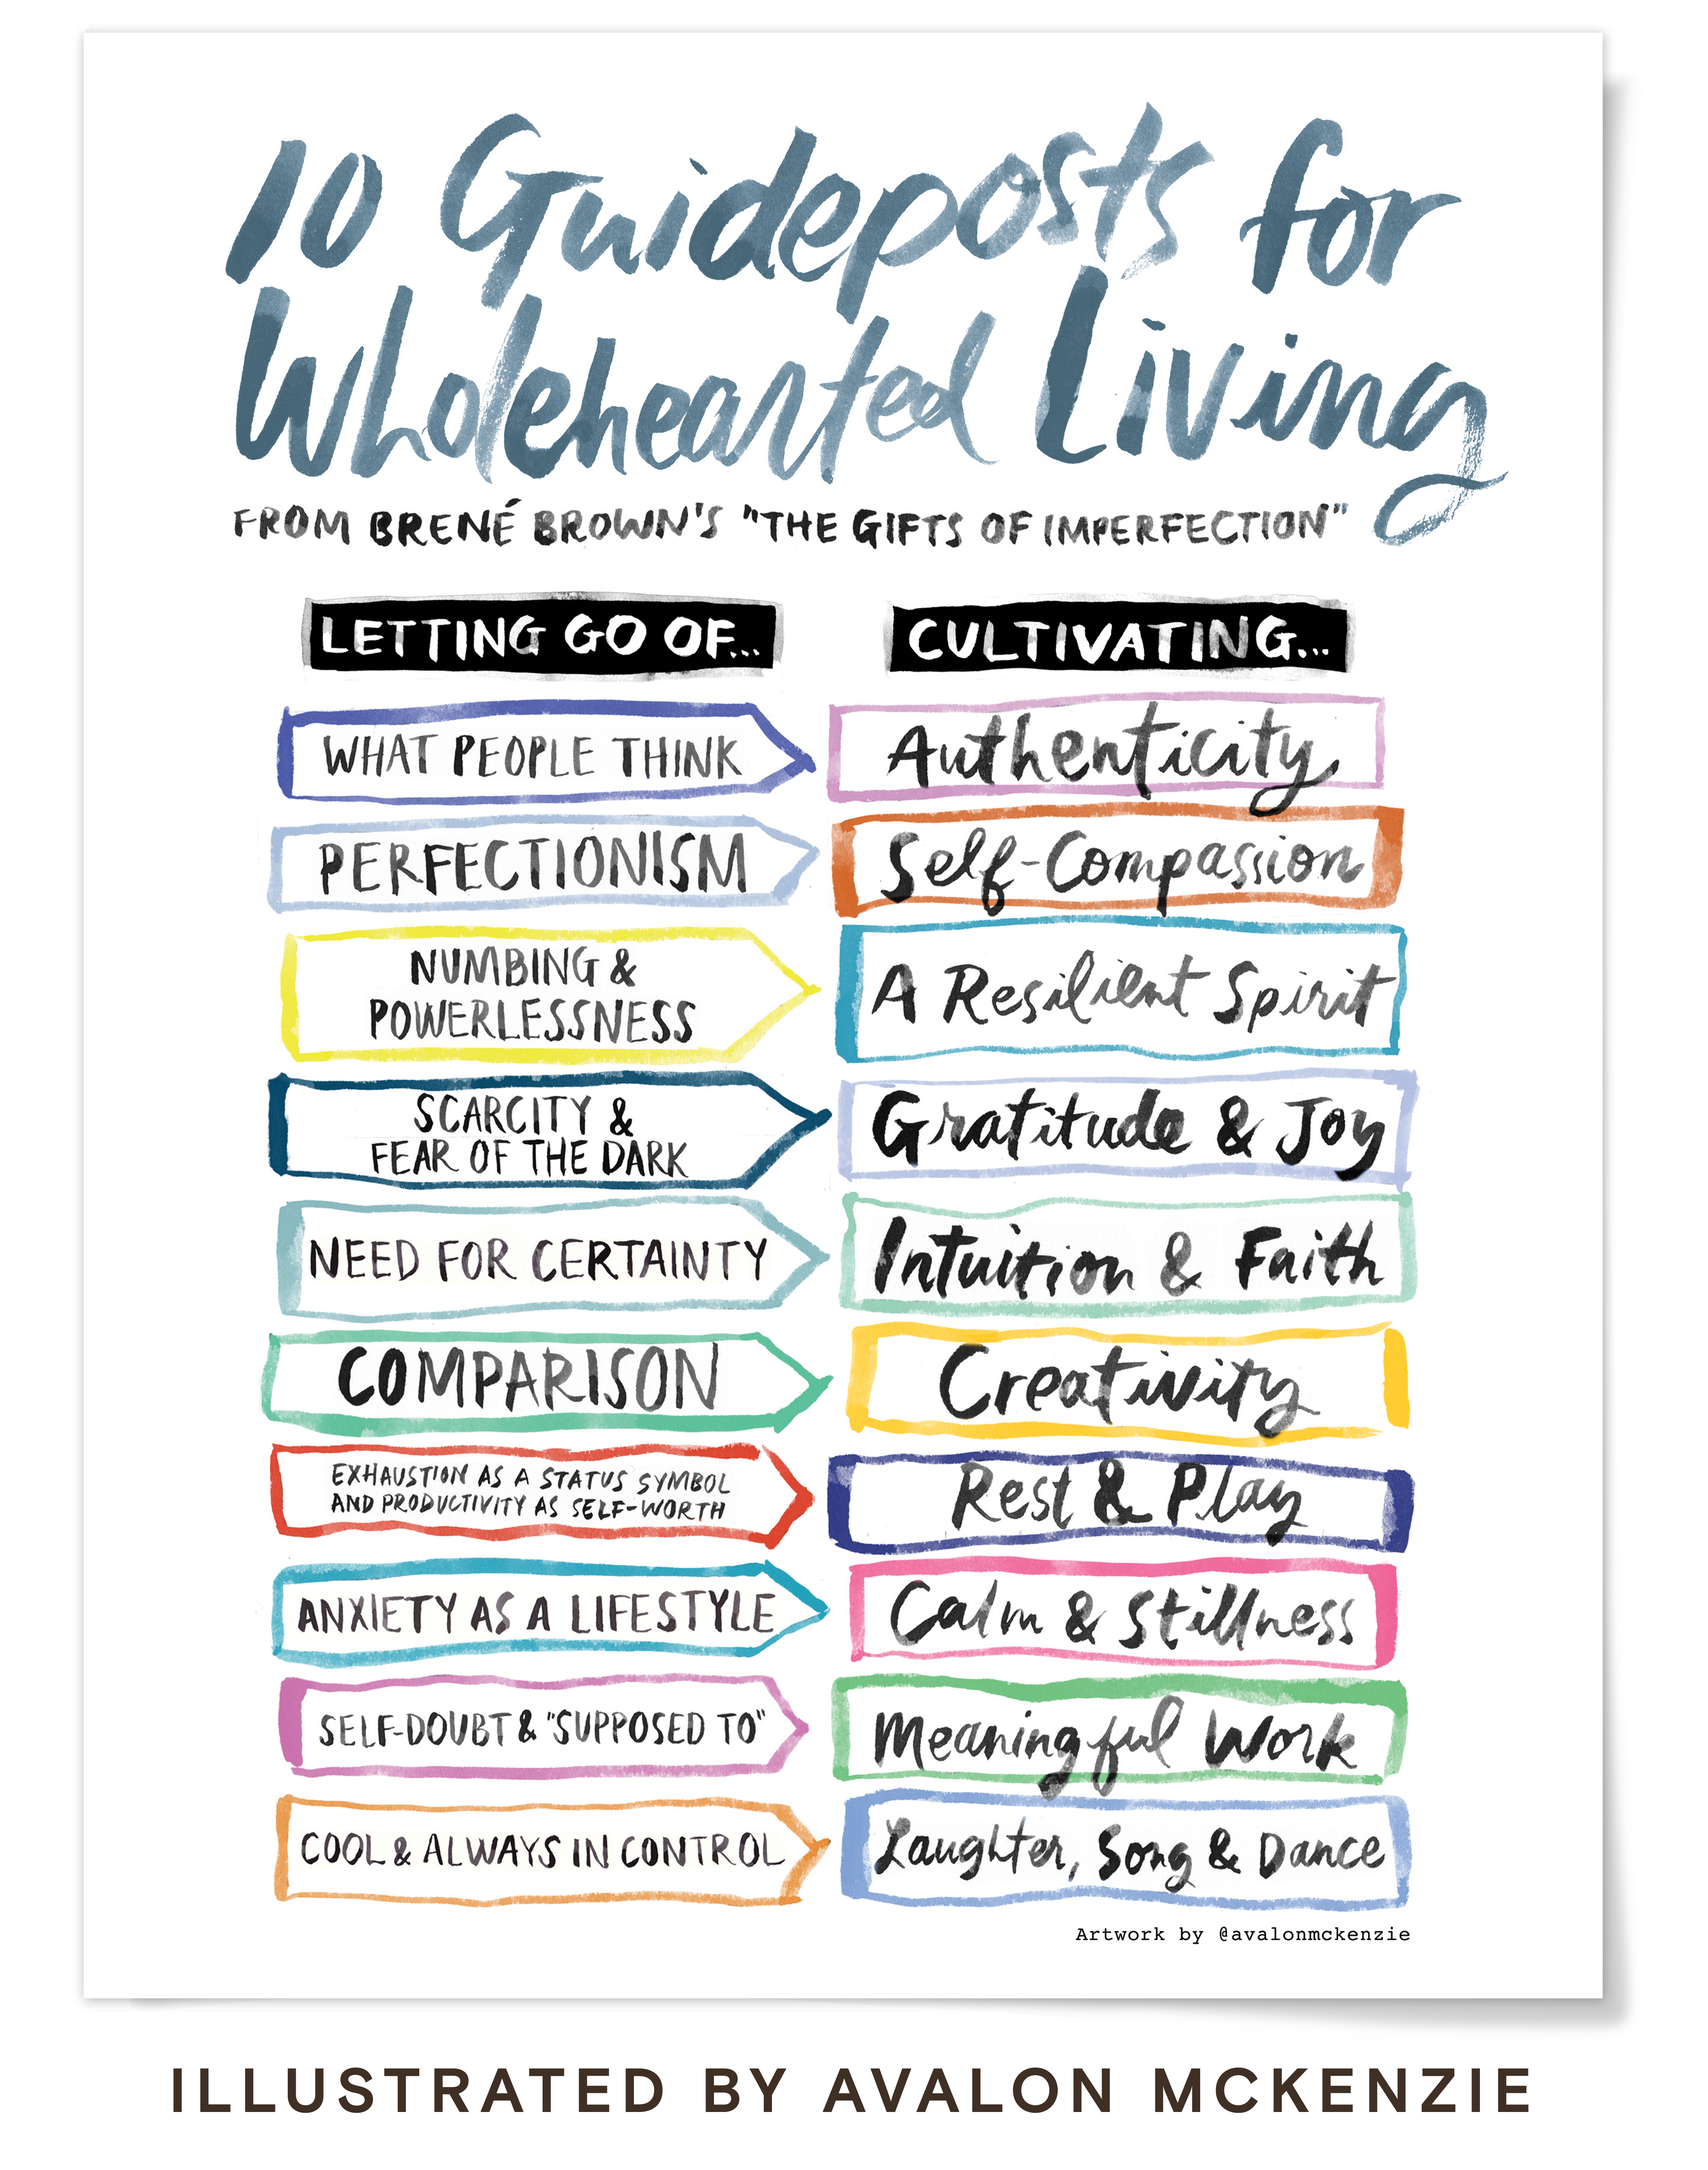 10 Guideposts for
Wholehearted Living
FROM BRENÉ BROWN'S "THE GIFTS OF IMPERFECTION"
LETTING GO OF... CULTIVATING...
WHAT PEOPLE THINK Authenticity
PERFECTIONISM Self-Compassion
NUMBING &
POWERLESSNESS
A Resilient Spirit
SCARCITY &
FEAR OF THE DARK
Gratitude & Joy
NEED FOR CERTAINTY Intuition & Faith
COMPARISON Creativity
EXHAUSTION AS A STATUS SYMBOL
AND PRODUCTIVITY AS SELF-WORTH
Rest & Play
ANXIETY AS A LIFESTYLE Calm & Stillness
SELF-DOUBT & "SUPPOSED TO" Meaningful Work
COOL & ALWAYS IN CONTROL Laughter, Song & Dance
Artwork by @avalonmckenzie
ILLUSTRATED BY AVALON MCKENZIE